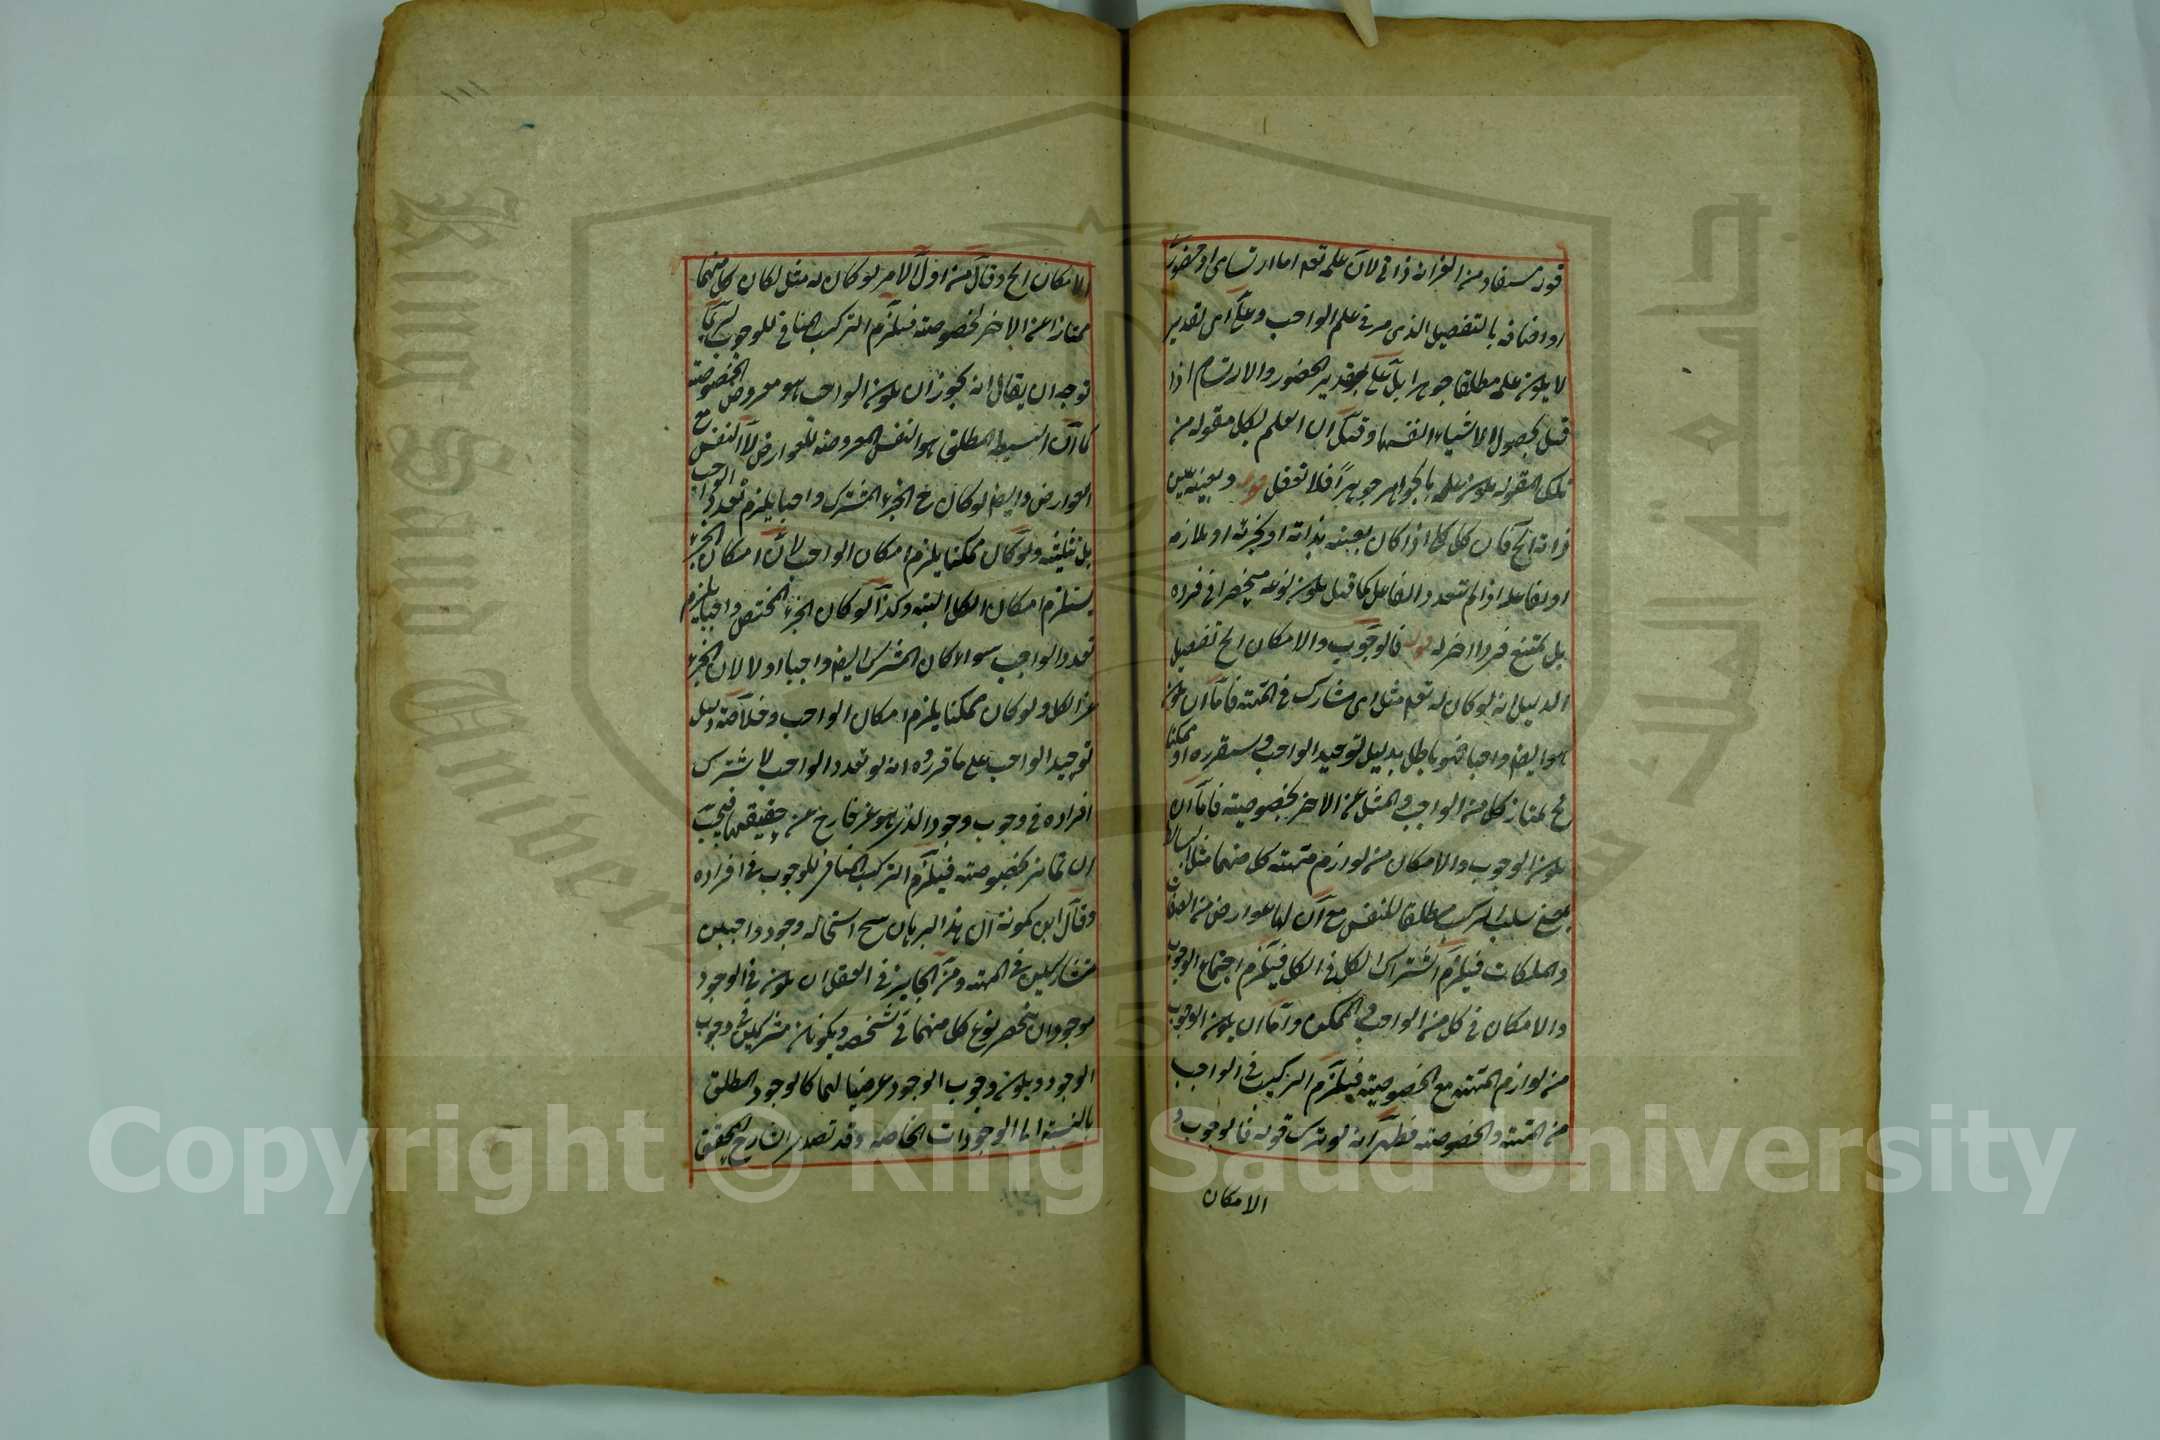 او اضافه بالتفصيل الذى مر فى علم الواجب وعلى اى تقدير
لا يكون علمه مطلقا جوهرا بل على تقدير الحضور والارتسام اذا
قيل بحصول الاشياء انفسها وقيل ان العلم لكل مقولة من
تلك المقولة يكون علمه بالجواهر جوهرا فلا تغفل قوله وبعينه بين
ذاته الخ فان كل كلى اذا كان بعينه بذاته او بجزئه او بلازمه
او بفاعله اذا لم يتعدد الفاعل كما قيل يكون نوعه منحصرا فى فرده
بل يمتنع فردا اخر له قوله فالوجوب والامكان الخ تفصيل
الدليل انه لو كان له تعه مثل اى مشارك فى المهية فاما ان يكون
هو ايضا واجبا فهو باطل بدليل توحيد الواجب وستقرره او ممكنا
فح يمتاز كل من الواجب والمثل عن الاخر بخصوصية فاما ان
يكون الوجوب والامكان من لوازم مهية كل منهما مثل
بمعنى سلب مطلقا للنفس مع ان لها عوارض من الصفات
والملكات فيلزم اشتراك الكل فى الكل فيلزم اجتماع الوجوب
والامكان فى كل من الواجب والممكن واما ان يكون الوجوب
من لوازم المهية مع الخصوصية فيلزم التركيب فى الواجب
من المهية والخصوصية فظهر انه لو ترك قوله فالوجوب و
الامكان
الامكان الخ وقال من اول الامر لو كان له مثل لكان كل منهما
ممتازا عن الاخر بخصوصية فيلزم التركيب المنافى للوجوب
توجه ان يقال انه يجوز ان يكون الواجب هو معروض الخصوصية
كما ان البسيط المطلق هو النفس المعروضة للعوارض لا النفس مع
العوارض وايضا لو كان ح الجزء المشترك واجبا يلزم تعدد الواجب
بل تثليثه ولو كان ممكنا يلزم امكان الواجب لان امكان الجزء
يستلزم امكان الكل البتة وكذا لو كان الجزء المختص واجبا يلزم
تعدد الواجب سواء كان المشترك ايضا واجبا او لا لان الجزء
غير الكل ولو كان ممكنا يلزم امكان الواجب وخلاصة دليل
توحيد الواجب على ما قرروه انه لو تعدد الواجب لاشترك
افراده فى وجوب وجود الذى هو غير خارج عن حقيقتها فيجب
ان تمايز بخصوصية فيلزم التركيب المنافر للوجوب فى افراده
وقال ابن كمونة ان هذا البرهان استحالة وجود واجبين
متشاركين فى المهية ومن الجايز فى العقل ان يكون فى الوجود
موجودان ينحصر نوع كل منهما فى شخصه ويكونان مشتركين فى وجوب
الوجود ويكون وجوب الوجود عرضيا لهما كالوجود المطلق
بالنسبة الى الوجودات الخاصة وقد تصدر الشارح المحقق
Copyright © King Saud University
King Saud University